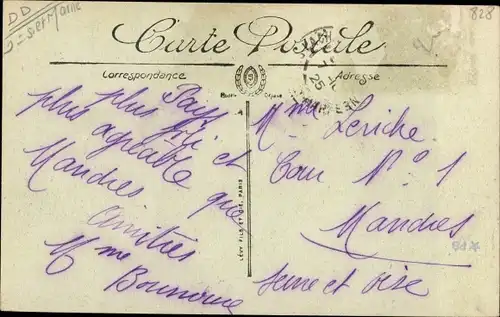 DD
828
Carte Postale
Correspondance
Adresse
25
Pays
plus joli et
plus agréable
que
Mandres
Amitiés
Mme
LÉVY FILS ET CIE, PARIS
Mme Leriche
Cour No 1
Mandres
Seine et Oise